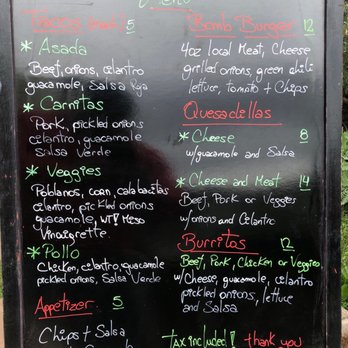 Menu
Tacos (each) 5
* Asada
Beef, onions, cilantro
guacamole, Salsa Roja
* Carnitas
Pork, pickled onions
cilantro, guacamole
Salsa Verde
* Veggies
Poblanos, corn, calabacitas
cilantro, pickled onions
guacamole, w/ Miso
Vinaigrette
* Pollo
Chicken, cilantro, guacamole
pickled onions, Salsa Verde
Appetizer 5
Chips + Salsa
Bomb Burger 12
4oz local Meat, Cheese
grilled onions, green chili
lettuce, tomato + Chips
Quesadillas
* Cheese 8
w/guacamole and Salsa
* Cheese and Meat 14
Beef, Pork or Veggies
w/onions and Cilantro
Burritos 12
Beef, Pork, Chicken or Veggies
w/Cheese, guacamole, cilantro
pickled onions, lettuce
and Salsa
tax included! thank you